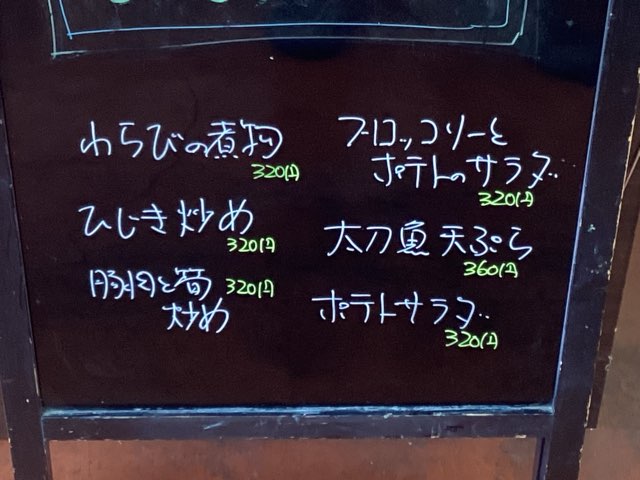 わらびの煮物
320円
ひじき炒め
320円
豚肉と筍 320円
炒め
ブロッコリーと
ポテトのサラダ
320円
太刀魚天ぷら
360円
ポテトサラダ
320円